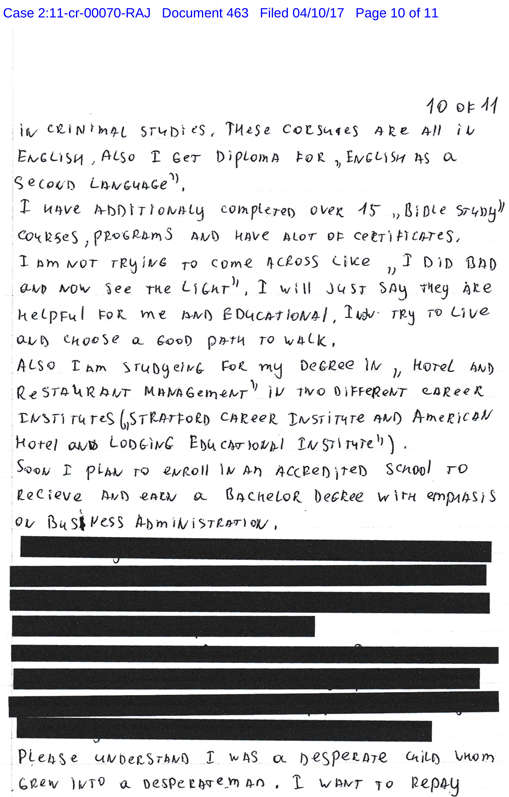 Case 2:11-cr-00070-RAJ Document 463 Filed 04/10/17 Page 10 of 11
10 OF 11
in CRINIMAL STUDIES. THESE CORSUAES ARE All in
ENGLISH, Also I GET Diploma FOR „ENGLISH AS a
SECOND LANGUAGE”.
I HAVE ADDITIONALY completed over 15 „BiBLE STUDY”
COURSES, PROGRAMS AND HAVE ALOT OF CERTIFICATES.
I AM NOT TRYING TO COME ACROSS LIKE „I DID BAD
AND NOW SEE THE LIGHT”. I will JUST SAY THEY ARE
HELPFUL FOR ME AND EDUCATIONAL. I TRY TO LIVE
AND CHOOSE a GOOD PATH TO WALK.
ALSO I am STUDYEING FOR my DEGREE IN „HOTEL AND
RESTAURANT MANAGEMENT” in TWO DIFFERENT CAREER
INSTITUTES („STRATFORD CAREER INSTITUTE AND AMERICAN
HOTEL AND LODGING EDUCATIONAL INSTITUTE”).
SOON I PLAN TO ENROLL IN AN ACCREDITED SCHOOL TO
RECIEVE AND EARN a BACHELOR DEGREE WITH EMPHASIS
ON BUSINESS ADMINISTRATION.
PLEASE UNDERSTAND I WAS a DESPERATE CHILD WHOM
GREW INTO a DESPERATE MAN. I WANT TO REPAY